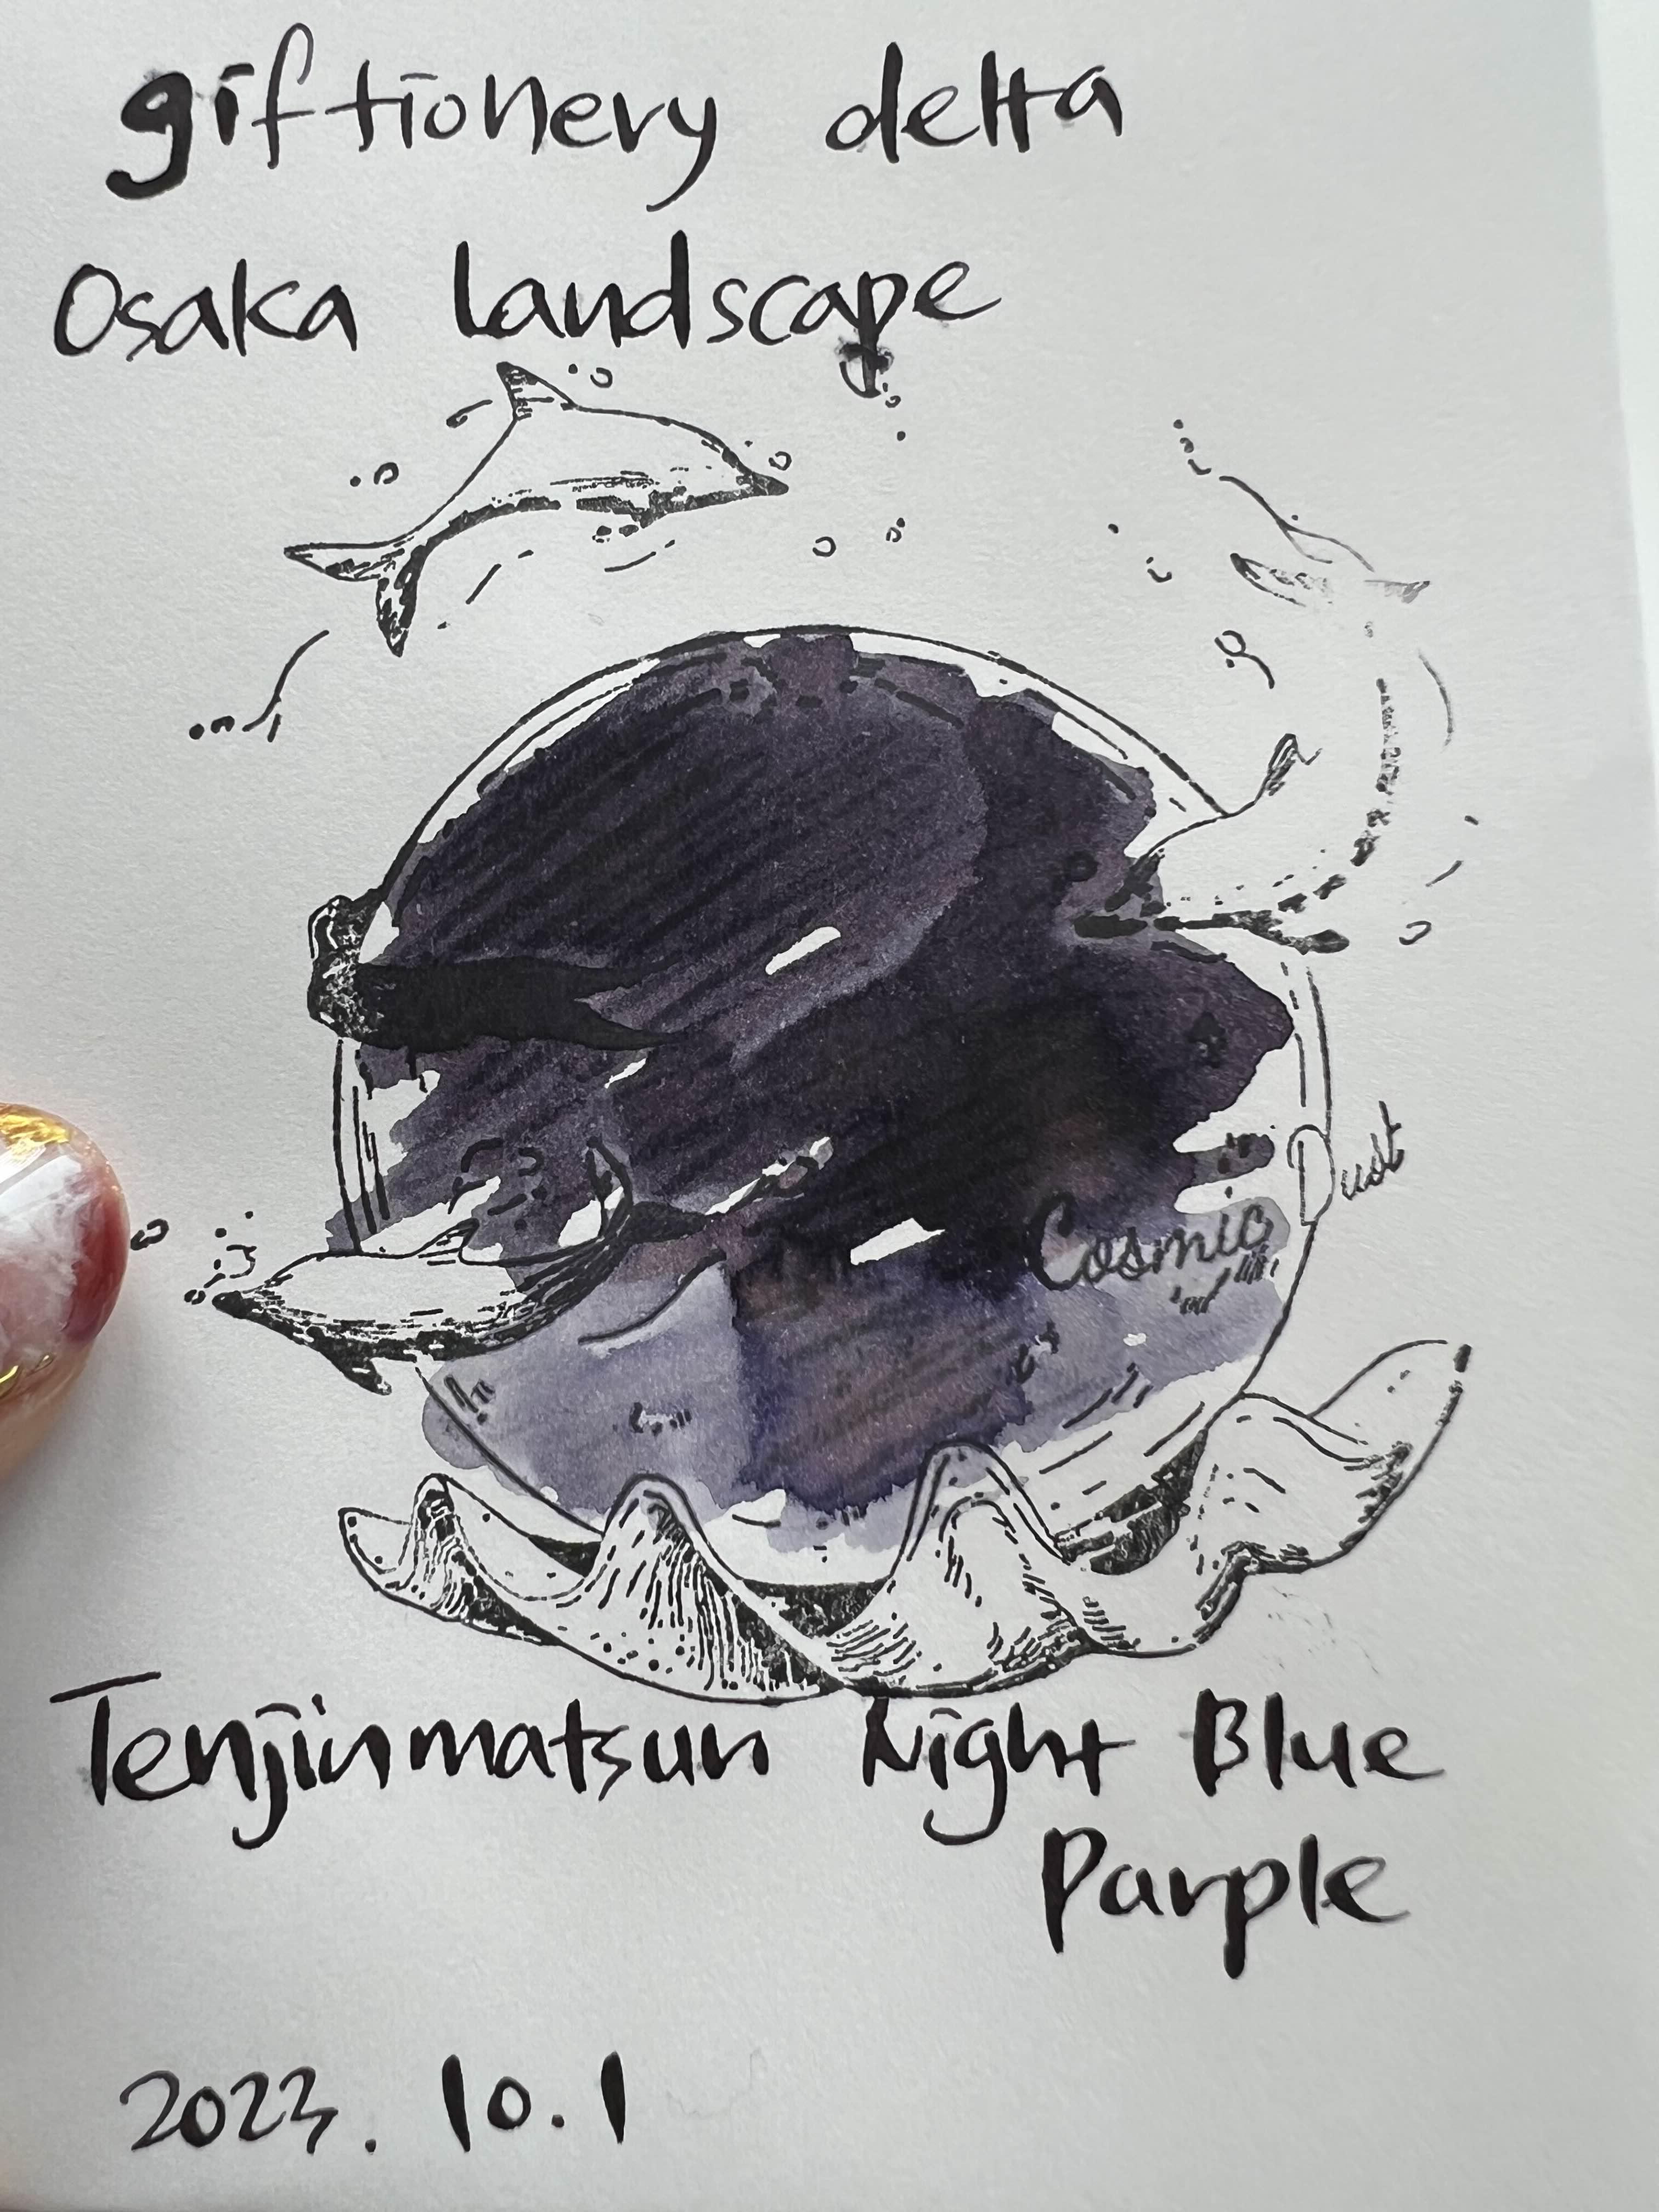 giftionery delta
Osaka landscape
Cosmic Dust
Tenjinmatsun Night Blue
Purple
2023. 10. 1